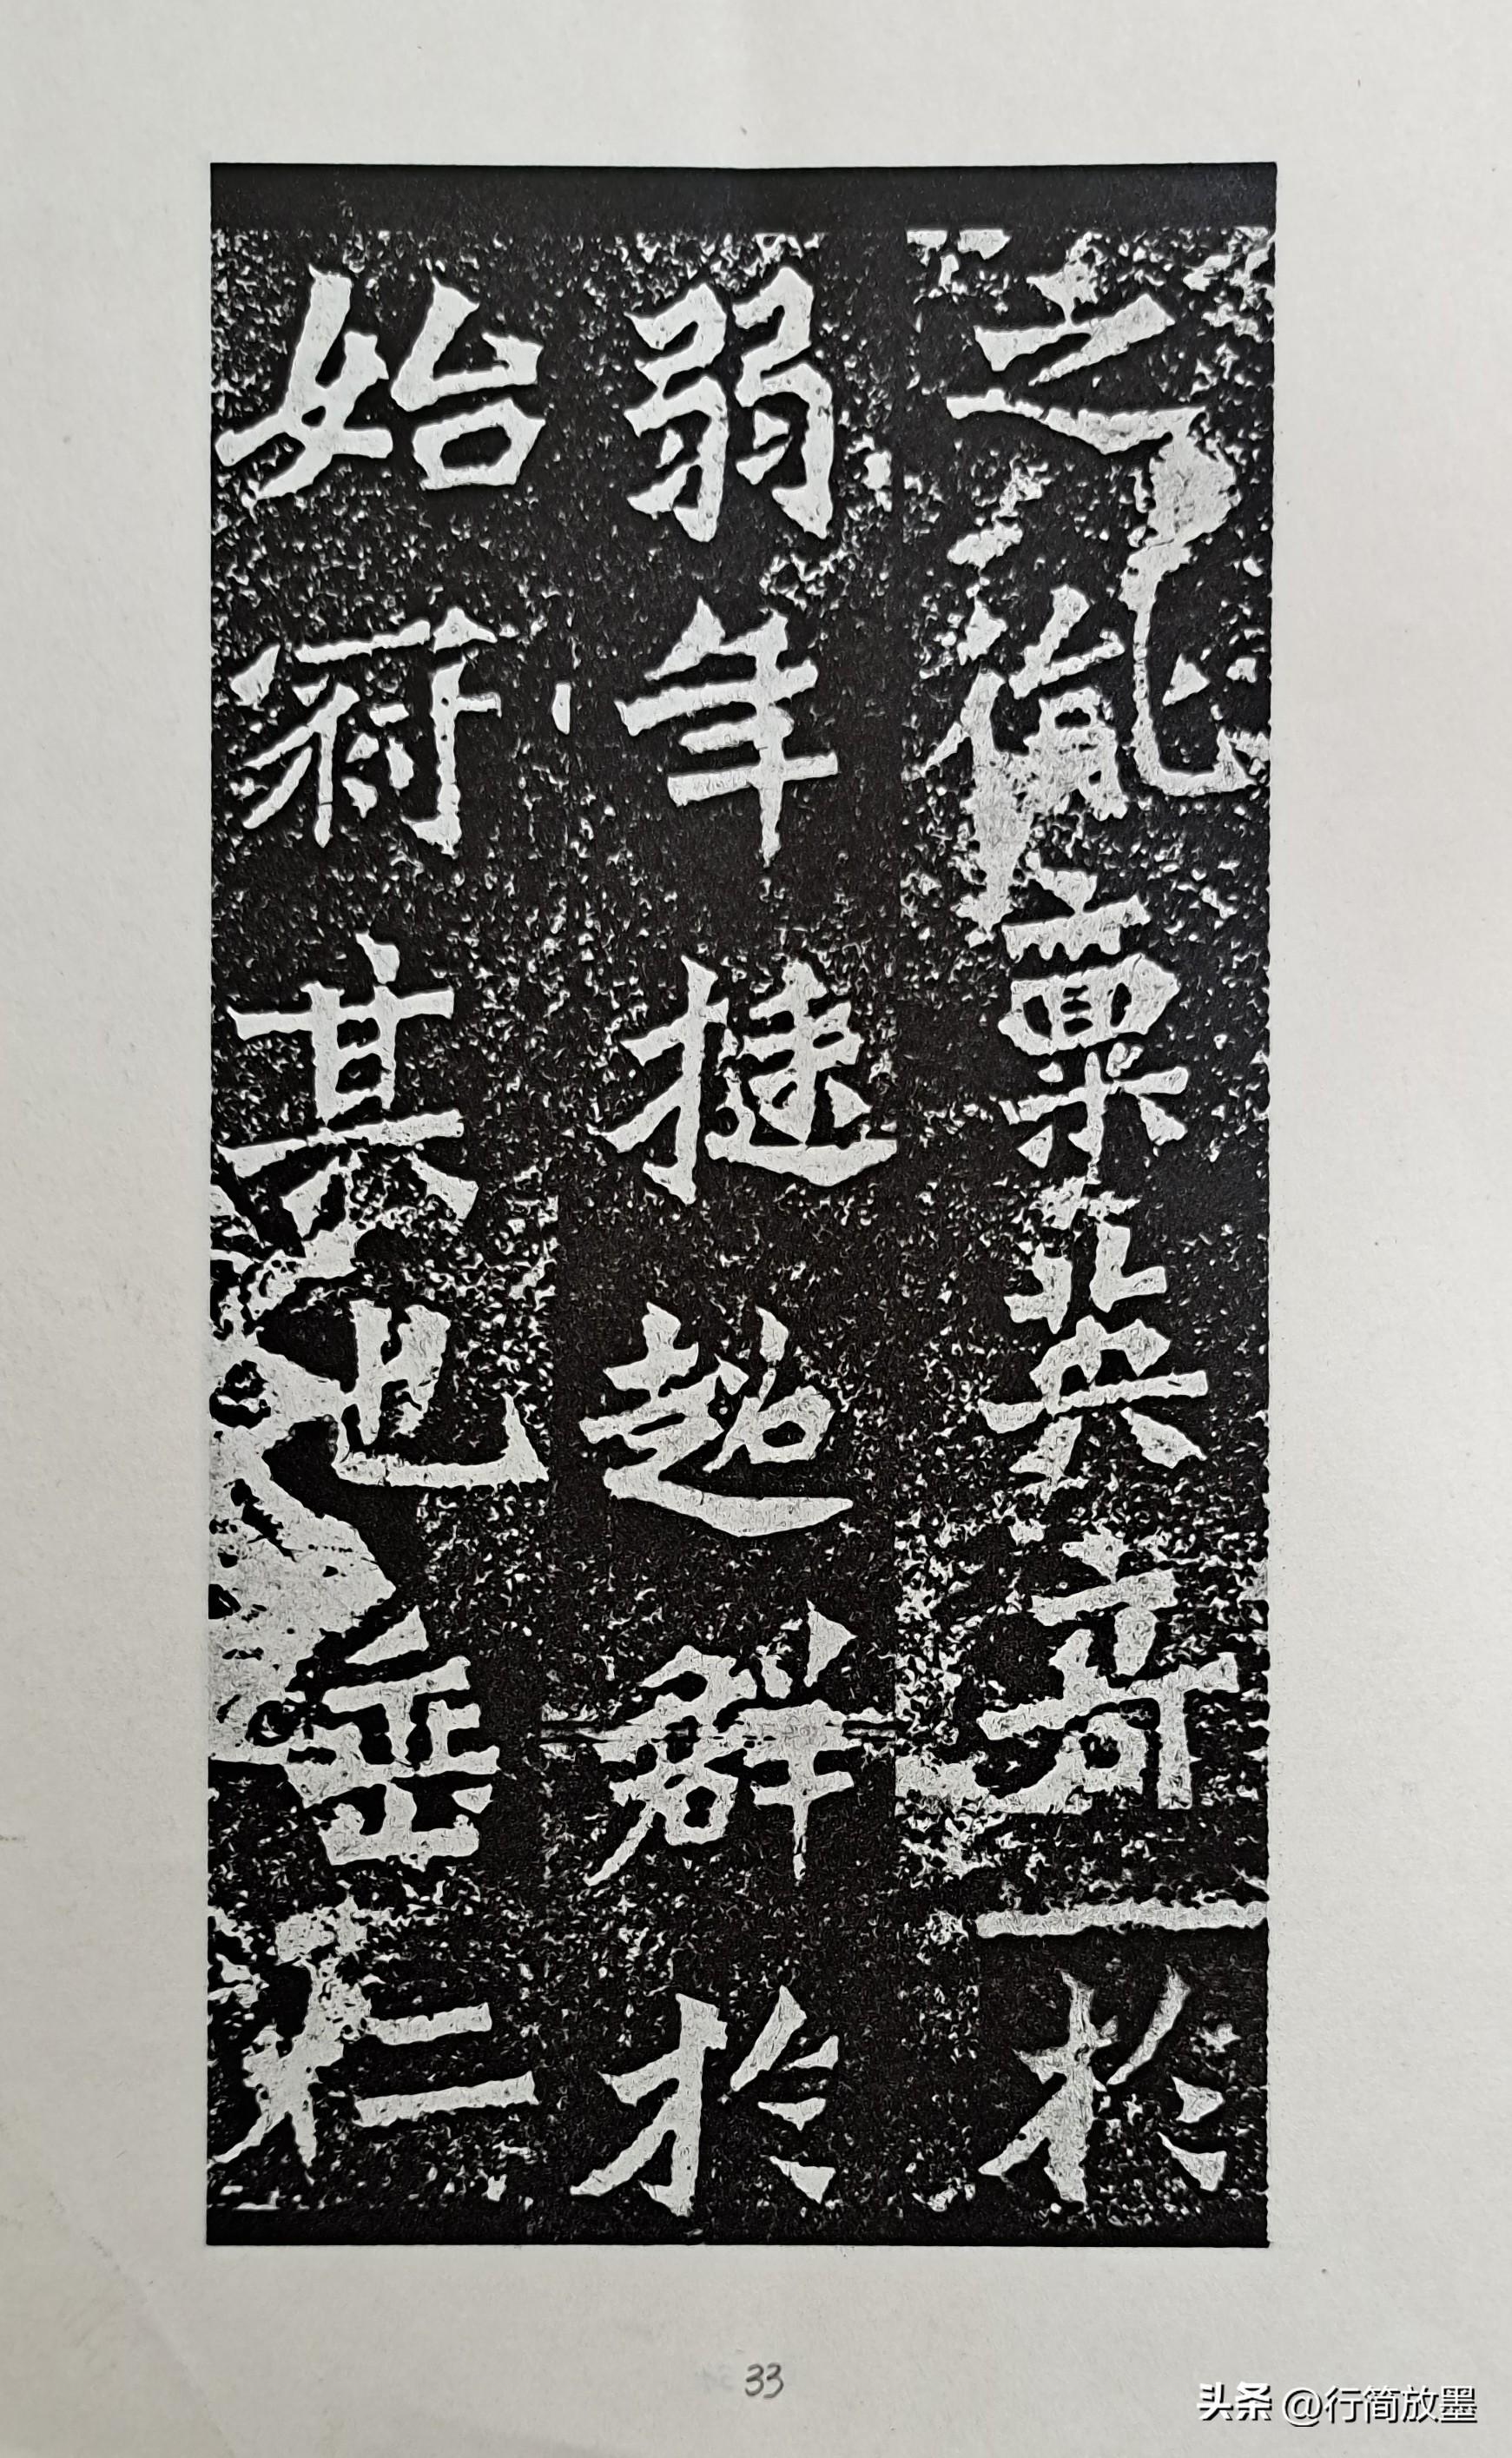 之胤稟英奇於
弱年挺超群於
始其也垂仁
33
头条 @行简放墨